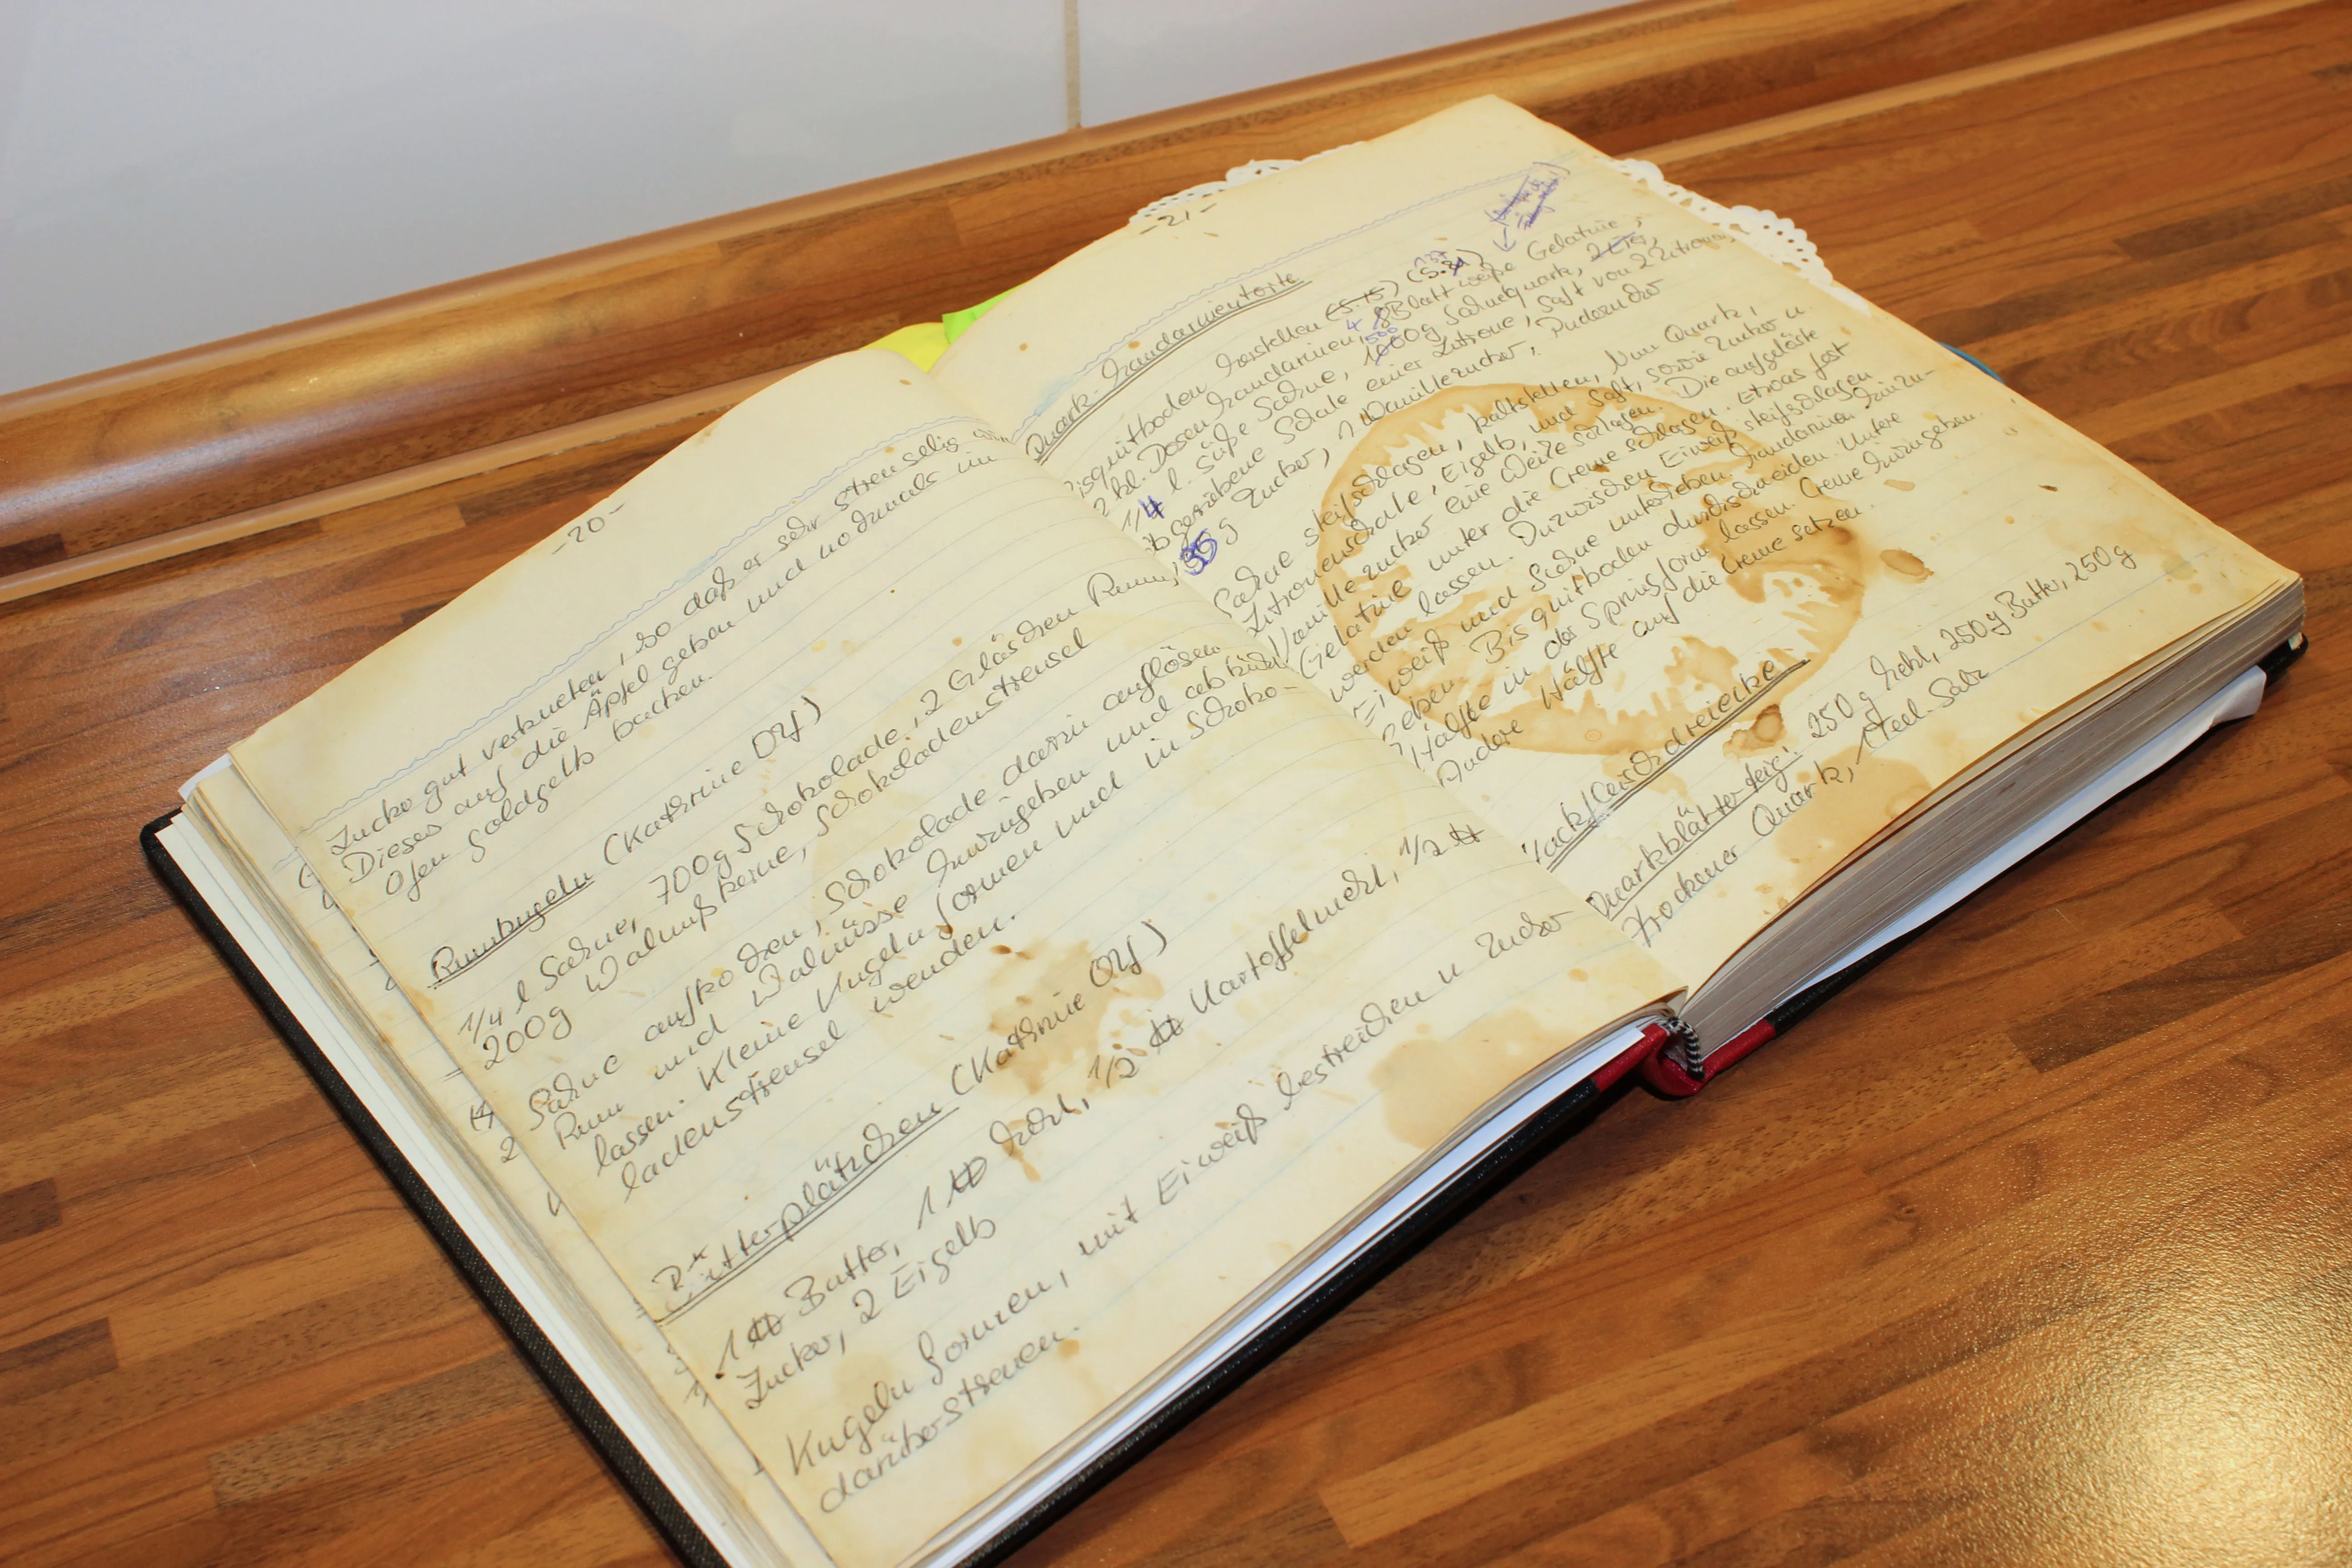 -20-
Zucker gut verkneten, so daß er sehr streuselig
Dieses auf die Äpfel geben und nochmals im
Ofen goldgelb backen.
Rumkugeln (Kathrine Oly)
1/4 l Sahne, 700g Schokolade, 2 Gläschen Rum,
200g Walnußkerne, Schokoladenstreusel
Sahne aufkochen, Schokolade darin auflösen
Rum und Walnüsse hinzugeben und abkühlen
lassen. Kleine Kugeln formen und in Schoko-
ladenstreusel wenden.
Ritterplätzchen (Kathrine Oly)
1 ℔ Butter, 1 ℔ Mehl, 1/2 ℔ Kartoffelmehl, 1/2 ℔
Zucker, 2 Eigelb
Kugeln formen, mit Eiweiß bestreichen u Zucker
darüberstreuen.
-21-
Quark-Mandarinentorte
Bisquitboden herstellen (S. 15)
2 kl. Dosen Mandarinen, 4 8 Blatt weiße Gelatine,
1/4 l. süße Sahne, 500 1000g Sahnequark, 2 Eier,
abgeriebene Schale einer Zitrone, Saft von 2 Zitronen,
g Zucker, 1 Vanillezucker, Puderzucker
Sahne steifschlagen, kaltstellen, Nun Quark,
Zitronenschale, Eigelb, und Saft, sowie Zucker u.
Vanillezucker eine Weile schlagen. Die aufgelöste
Gelatine unter die Creme schlagen. Etwas fest
werden lassen. Inzwischen Eiweiß steifschlagen
Eiweiß und Sahne unterheben. Mandarinen hinzu-
geben. Bisquitboden durchschneiden. Untere
Hälfte in der Springform lassen. Creme hinzugeben.
Andere Hälfte auf die Creme setzen.
Hackfleischdreiecke
Quarkblätterteig: 250 g Mehl, 250g Butter, 250g
trockener Quark, 1 Teel. Salz